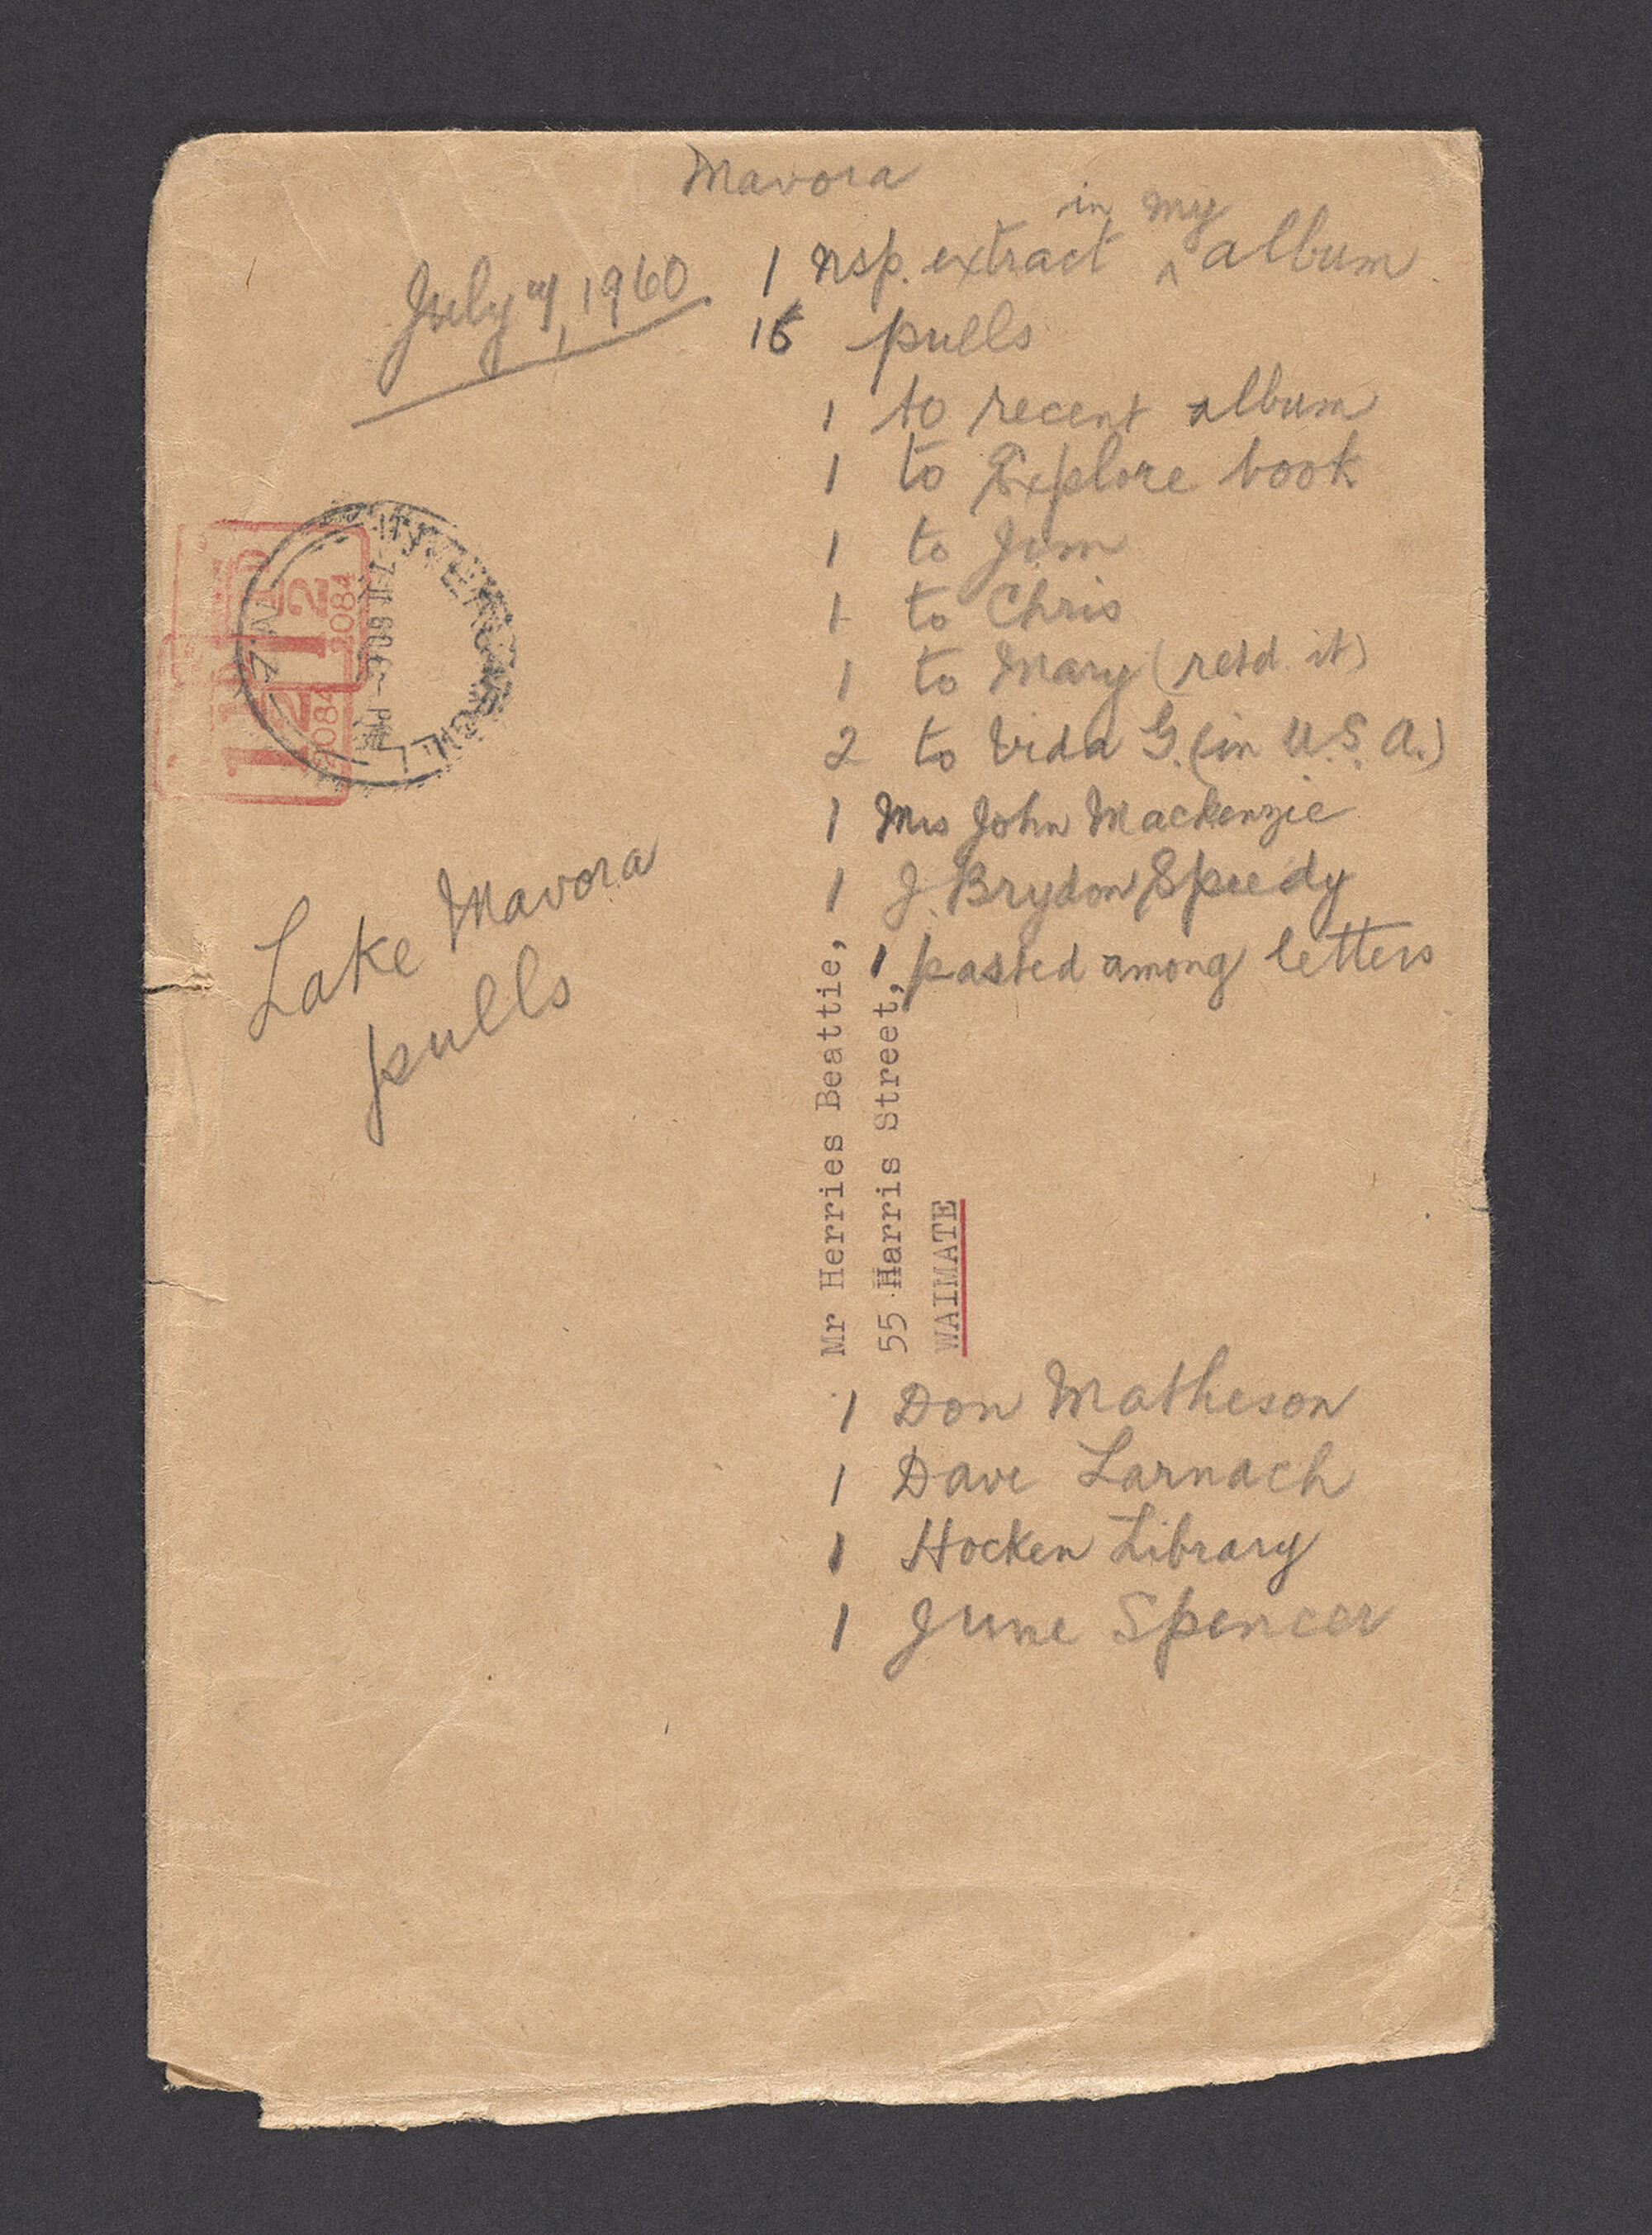 Mavora
1 nsp. extract in my ^ album
July 4, 1960
15 pulls
1 to recent album
1 to Explore book
1 to Jim
1 to Chris
1 to Mary (retd. it)
2 to Vida G. (in U.S.A.)
1 Mrs John Mackenzie
1 J. Brydon Speedy
1 pasted among letters
Lake Mavora
pulls
Mr Herries Beattie,
55 Harris Street,
WAIMATE
1 Don Matheson
1 Dave Larnach
1 Hocken Library
1 June Spencer
INVERCARGILL
2084
2084